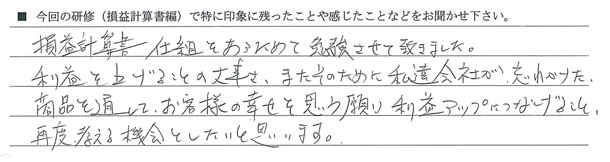 ■ 今回の研修（損益計算書編）で特に印象に残ったことや感じたことなどをお聞かせ下さい。
損益計算書 仕組をあらためて勉強させて頂きました。
利益を上げることの大事さ、またそのために私達会社が、忘れかけた、
商品を通して、お客様の幸せを思う願い 利益アップにつなげること、
再度考える機会としたいと思います。